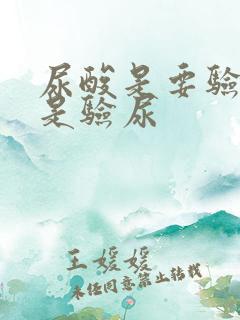 尿酸是要驗
是驗尿
王媛媛
未经同意禁止转载